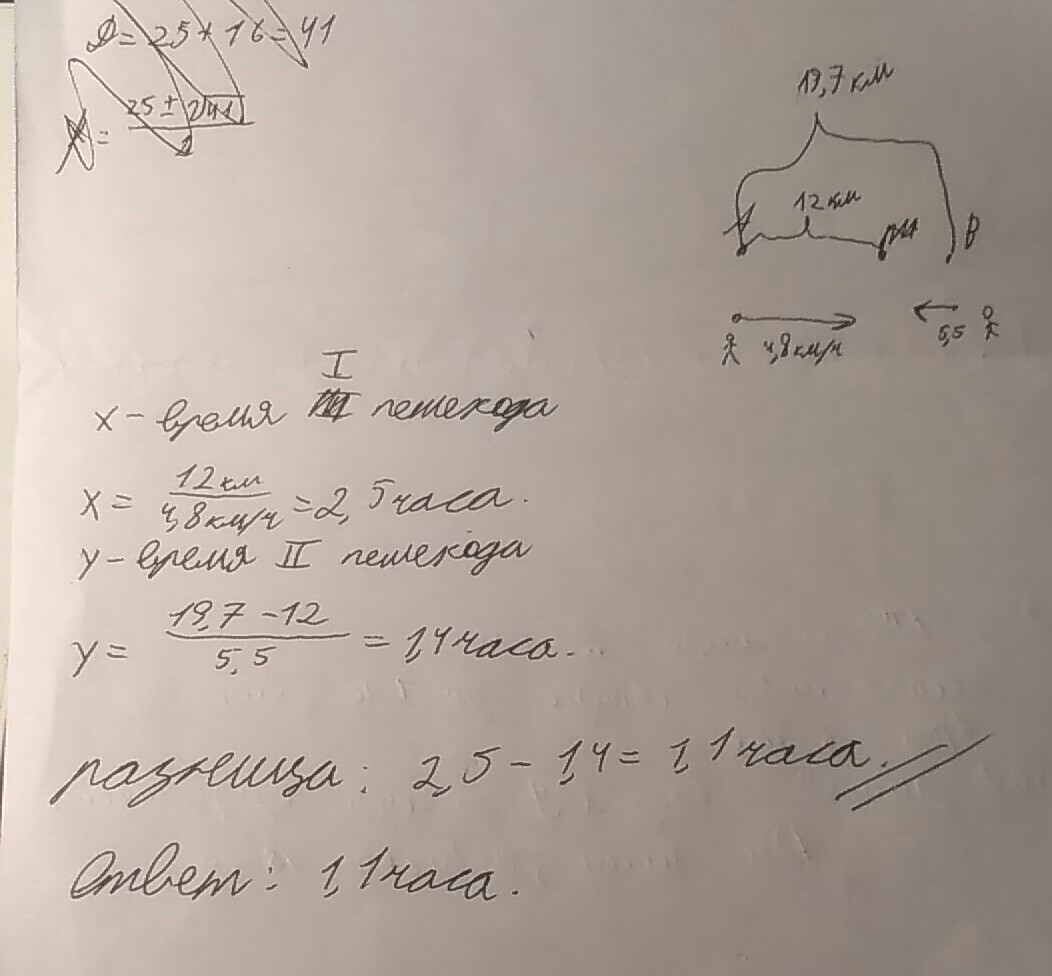 D = 25 + 16 = 41
X = 25 ± 2√41 / 2
19,7 км
12 км
A M B
4,8 км/ч 5,5
I
x - время пешехода
x = 12 км / 4,8 км/ч = 2,5 часа.
y - время II пешехода
y = 19,7 - 12 / 5,5 = 1,4 часа.
разница: 2,5 - 1,4 = 1,1 часа.
Ответ: 1,1 часа.